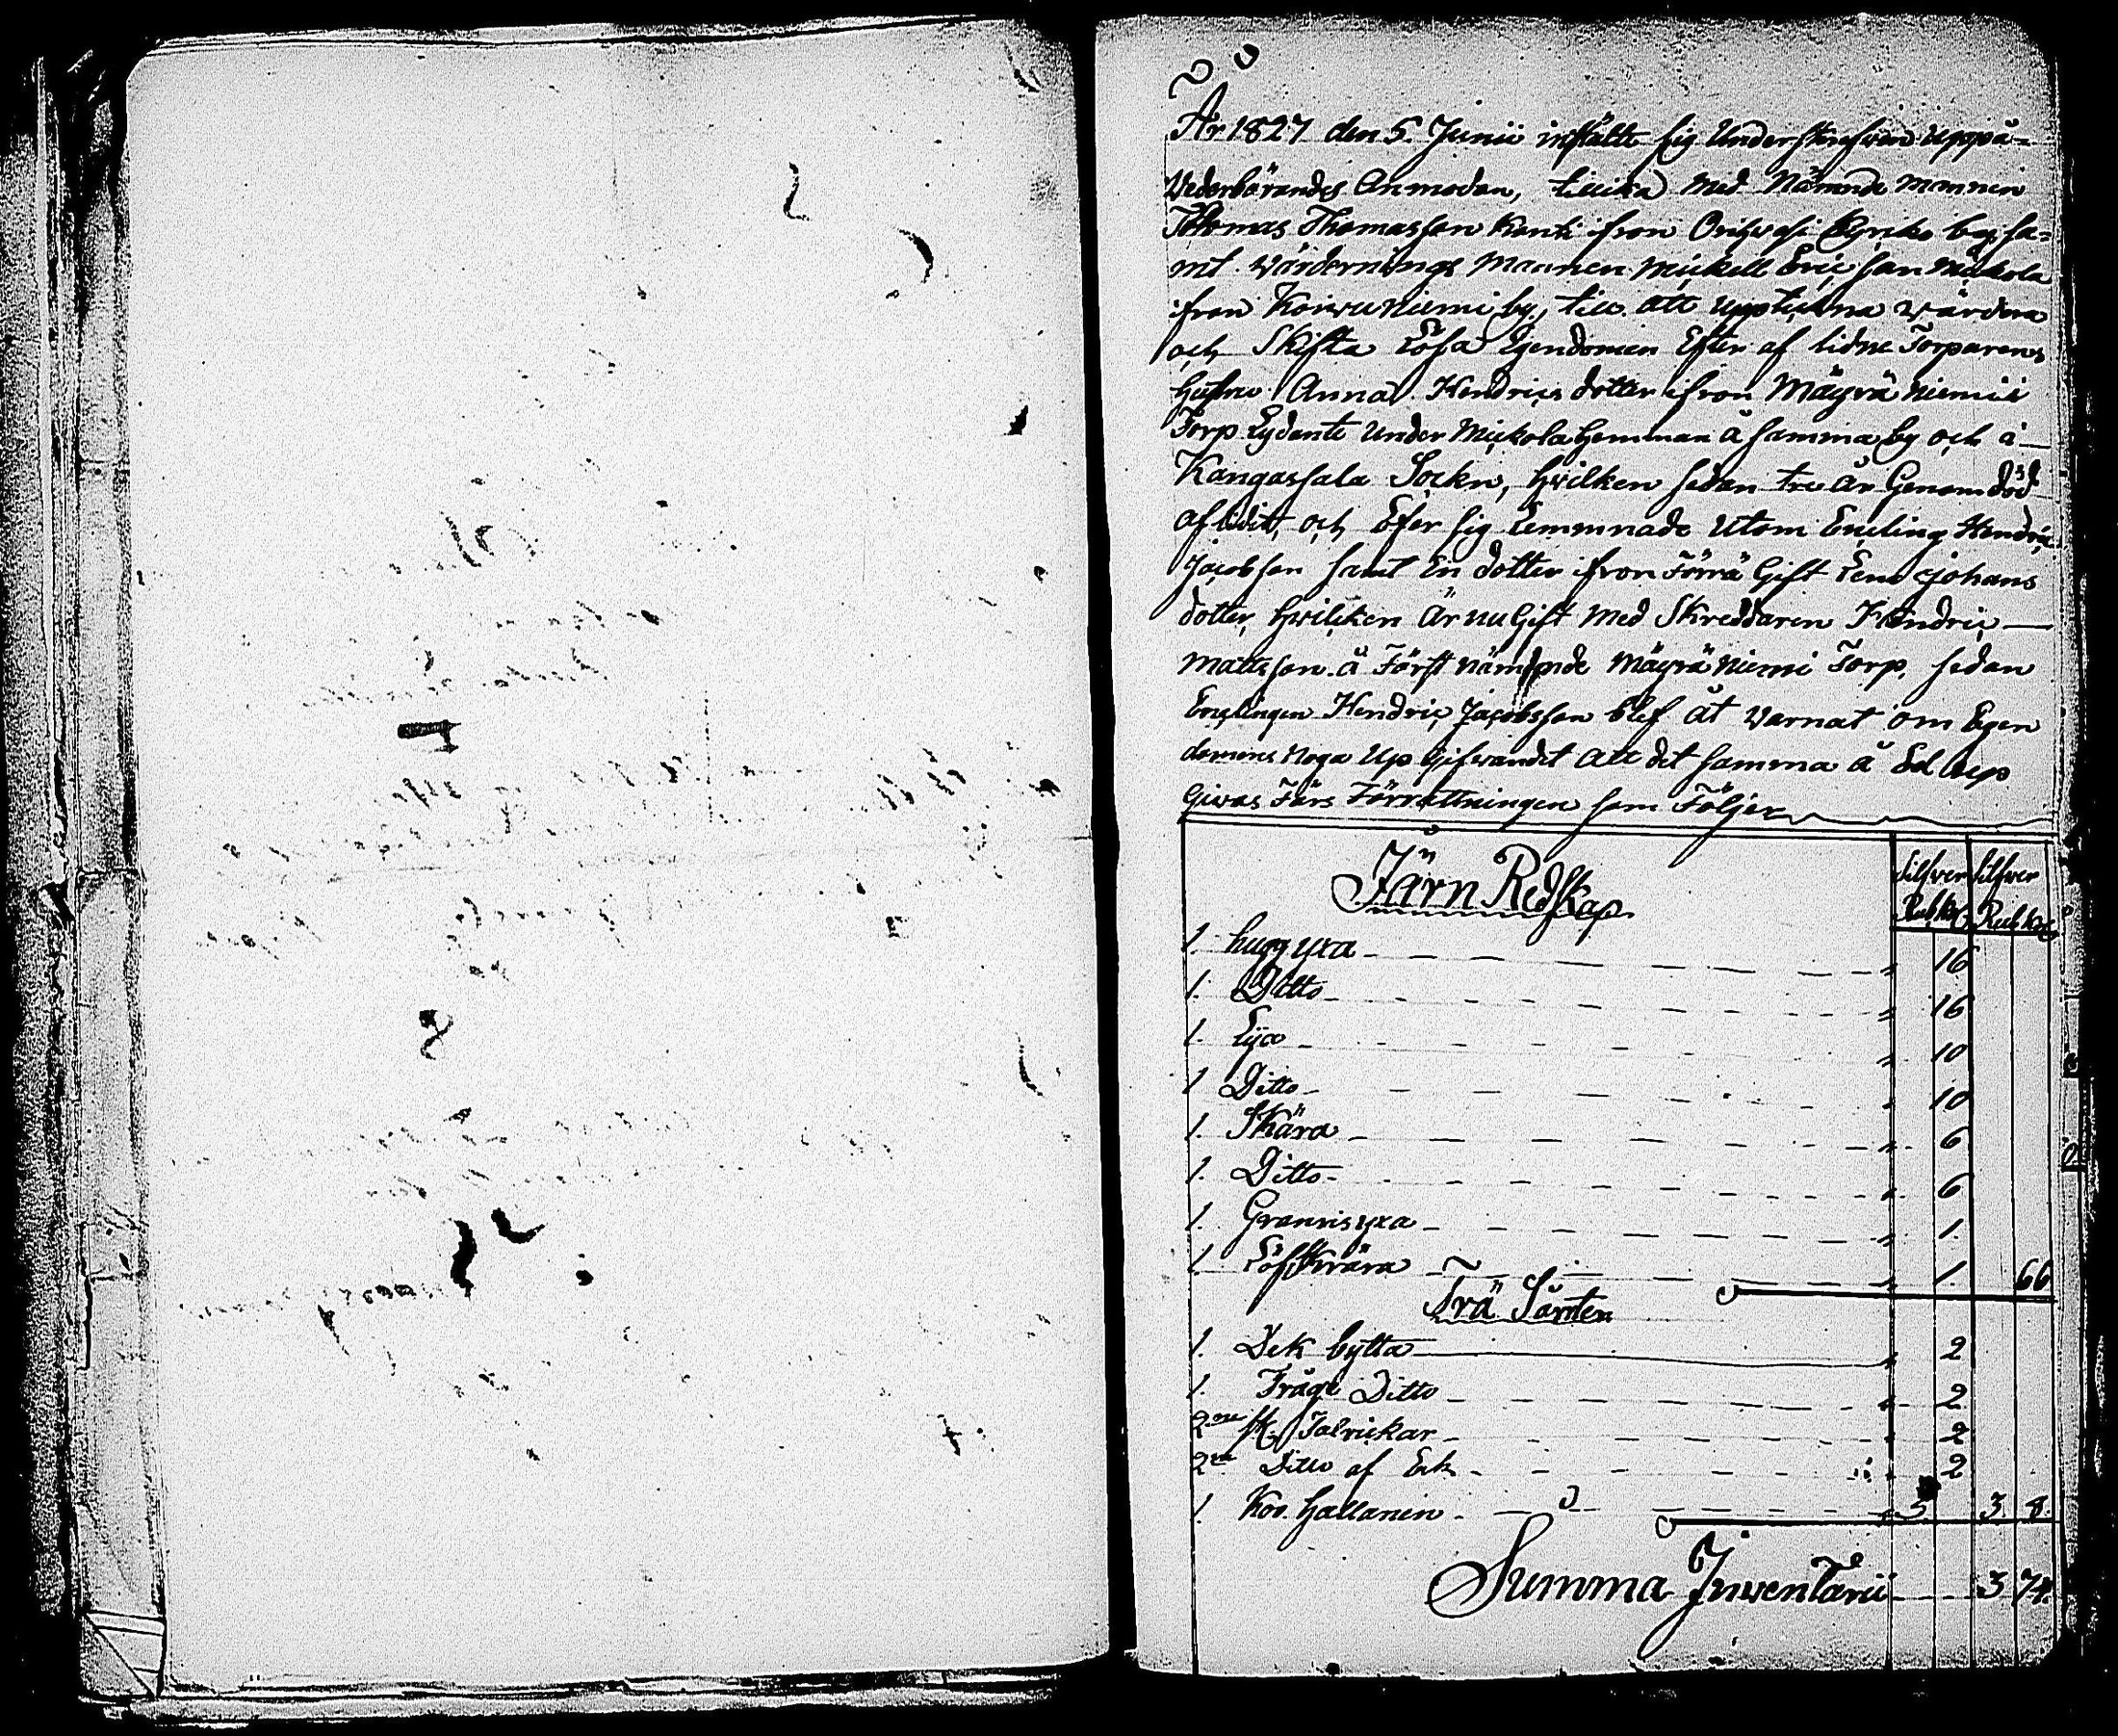 År 1827 den 5. Junii instälte sig Underskrefven uppå-
Vederbörandes Anmodan, tillika med Nämnde mannen
Thomas Thomasson Kanti ifron by, sa-
mt. Värdernings Mannen Mickell Ericsson Mickola
ifron Koivuniemi by, till att uppteckna värdera
och Skifta Lösa Egendomen Efter af lidne Torparens
hustru Anna Hendrics dotter ifron Mäyrä Niemi
Torp Lydante under Mickola Hemman å samma by och i
Kangassala Sockn, hvilken sedan tre år Genom död
aflidit, och Efter sig Lemmnade Utom Encling Hendric
Jacobson samt En dotter ifron Förra Gift Lena Johans
dotter, hvilcken är nu Gift med Skreddaren Hendric
Mattsson å Först nämnde Mäyrä Niemi Torp, sedan
Enclingen Hendric Jacobsson blef åt varnat om Egen
domens Noga Up Gifvandet att det samma å Ed up
Givas Förs Förrättningen som Följer
Järn Redskap
Silfver Silfver
Rub. Kop. Rub. Kop.
1. huggyxa " 16
1. Ditto " 16
1. Lya " 10
1 Ditto " 10
1. Skära " 6
1. Ditto " 6
1. Granrisyxa " 1.
1. Löfskrära " 1. 66
Trä Sarter
1. Dek bytta " 2
1. Tråge Ditto " 2
2 st. Talrickar " 2
2 Ditto af Ek " 2
1. Ko. Hallanen 3. 3. 8.
Summa Inventarii 3 74.